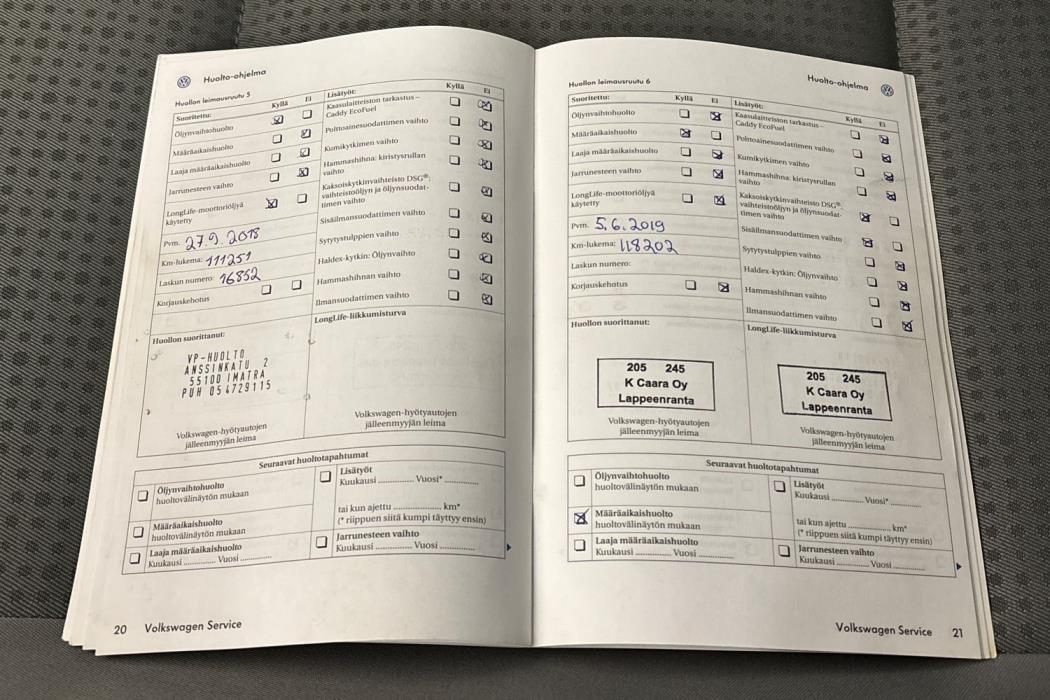 Huolto-ohjelma
Huollon leimausruutu 5
Suoritettu: Kyllä Ei Lisätyöt: Kyllä Ei
Öljynvaihtohuolto
Määräaikaishuolto
Laaja määräaikaishuolto
Jarrunesteen vaihto
LongLife-moottoriöljyä
käytetty
Pvm. 27.9.2018
Km-lukema: 111251
Laskun numero: 16852
Korjauskehotus
Kaasulaitteiston tarkastus –
Caddy EcoFuel
Polttoainesuodattimen vaihto
Kumikytkimen vaihto
Hammashihna: kiristysrullan
vaihto
Kaksoiskytkinvaihteisto DSG®:
vaihteistoöljyn ja öljynsuodat-
timen vaihto
Sisäilmansuodattimen vaihto
Sytytystulppien vaihto
Haldex-kytkin: Öljynvaihto
Hammashihnan vaihto
Ilmansuodattimen vaihto
Huollon suorittanut:
VP-HUOLTO
ANSSINKATU 2
55100 IMATRA
PUH 05 4729115
Volkswagen-hyötyautojen
jälleenmyyjän leima
LongLife-liikkumisturva
Volkswagen-hyötyautojen
jälleenmyyjän leima
Seuraavat huoltotapahtumat
Öljynvaihtohuolto
huoltovälinäytön mukaan
Määräaikaishuolto
huoltovälinäytön mukaan
Laaja määräaikaishuolto
Kuukausi ............ Vuosi ............
Lisätyöt
Kuukausi ............ Vuosi* ............
tai kun ajettu ............ km*
(* riippuen siitä kumpi täyttyy ensin)
Jarrunesteen vaihto
Kuukausi ............ Vuosi ............
20 Volkswagen Service
Huolto-ohjelma
Huollon leimausruutu 6
Suoritettu: Kyllä Ei Lisätyöt: Kyllä Ei
Öljynvaihtohuolto
Määräaikaishuolto
Laaja määräaikaishuolto
Jarrunesteen vaihto
LongLife-moottoriöljyä
käytetty
Pvm. 5.6.2019
Km-lukema: 118202
Laskun numero:
Korjauskehotus
Kaasulaitteiston tarkastus –
Caddy EcoFuel
Polttoainesuodattimen vaihto
Kumikytkimen vaihto
Hammashihna: kiristysrullan
vaihto
Kaksoiskytkinvaihteisto DSG®:
vaihteistoöljyn ja öljynsuodat-
timen vaihto
Sisäilmansuodattimen vaihto
Sytytystulppien vaihto
Haldex-kytkin: Öljynvaihto
Hammashihnan vaihto
Ilmansuodattimen vaihto
Huollon suorittanut:
205 245
K Caara Oy
Lappeenranta
Volkswagen-hyötyautojen
jälleenmyyjän leima
LongLife-liikkumisturva
205 245
K Caara Oy
Lappeenranta
Volkswagen-hyötyautojen
jälleenmyyjän leima
Seuraavat huoltotapahtumat
Öljynvaihtohuolto
huoltovälinäytön mukaan
Määräaikaishuolto
huoltovälinäytön mukaan
Laaja määräaikaishuolto
Kuukausi ............ Vuosi ............
Lisätyöt
Kuukausi ............ Vuosi* ............
tai kun ajettu ............ km*
(* riippuen siitä kumpi täyttyy ensin)
Jarrunesteen vaihto
Kuukausi ............ Vuosi ............
Volkswagen Service 21